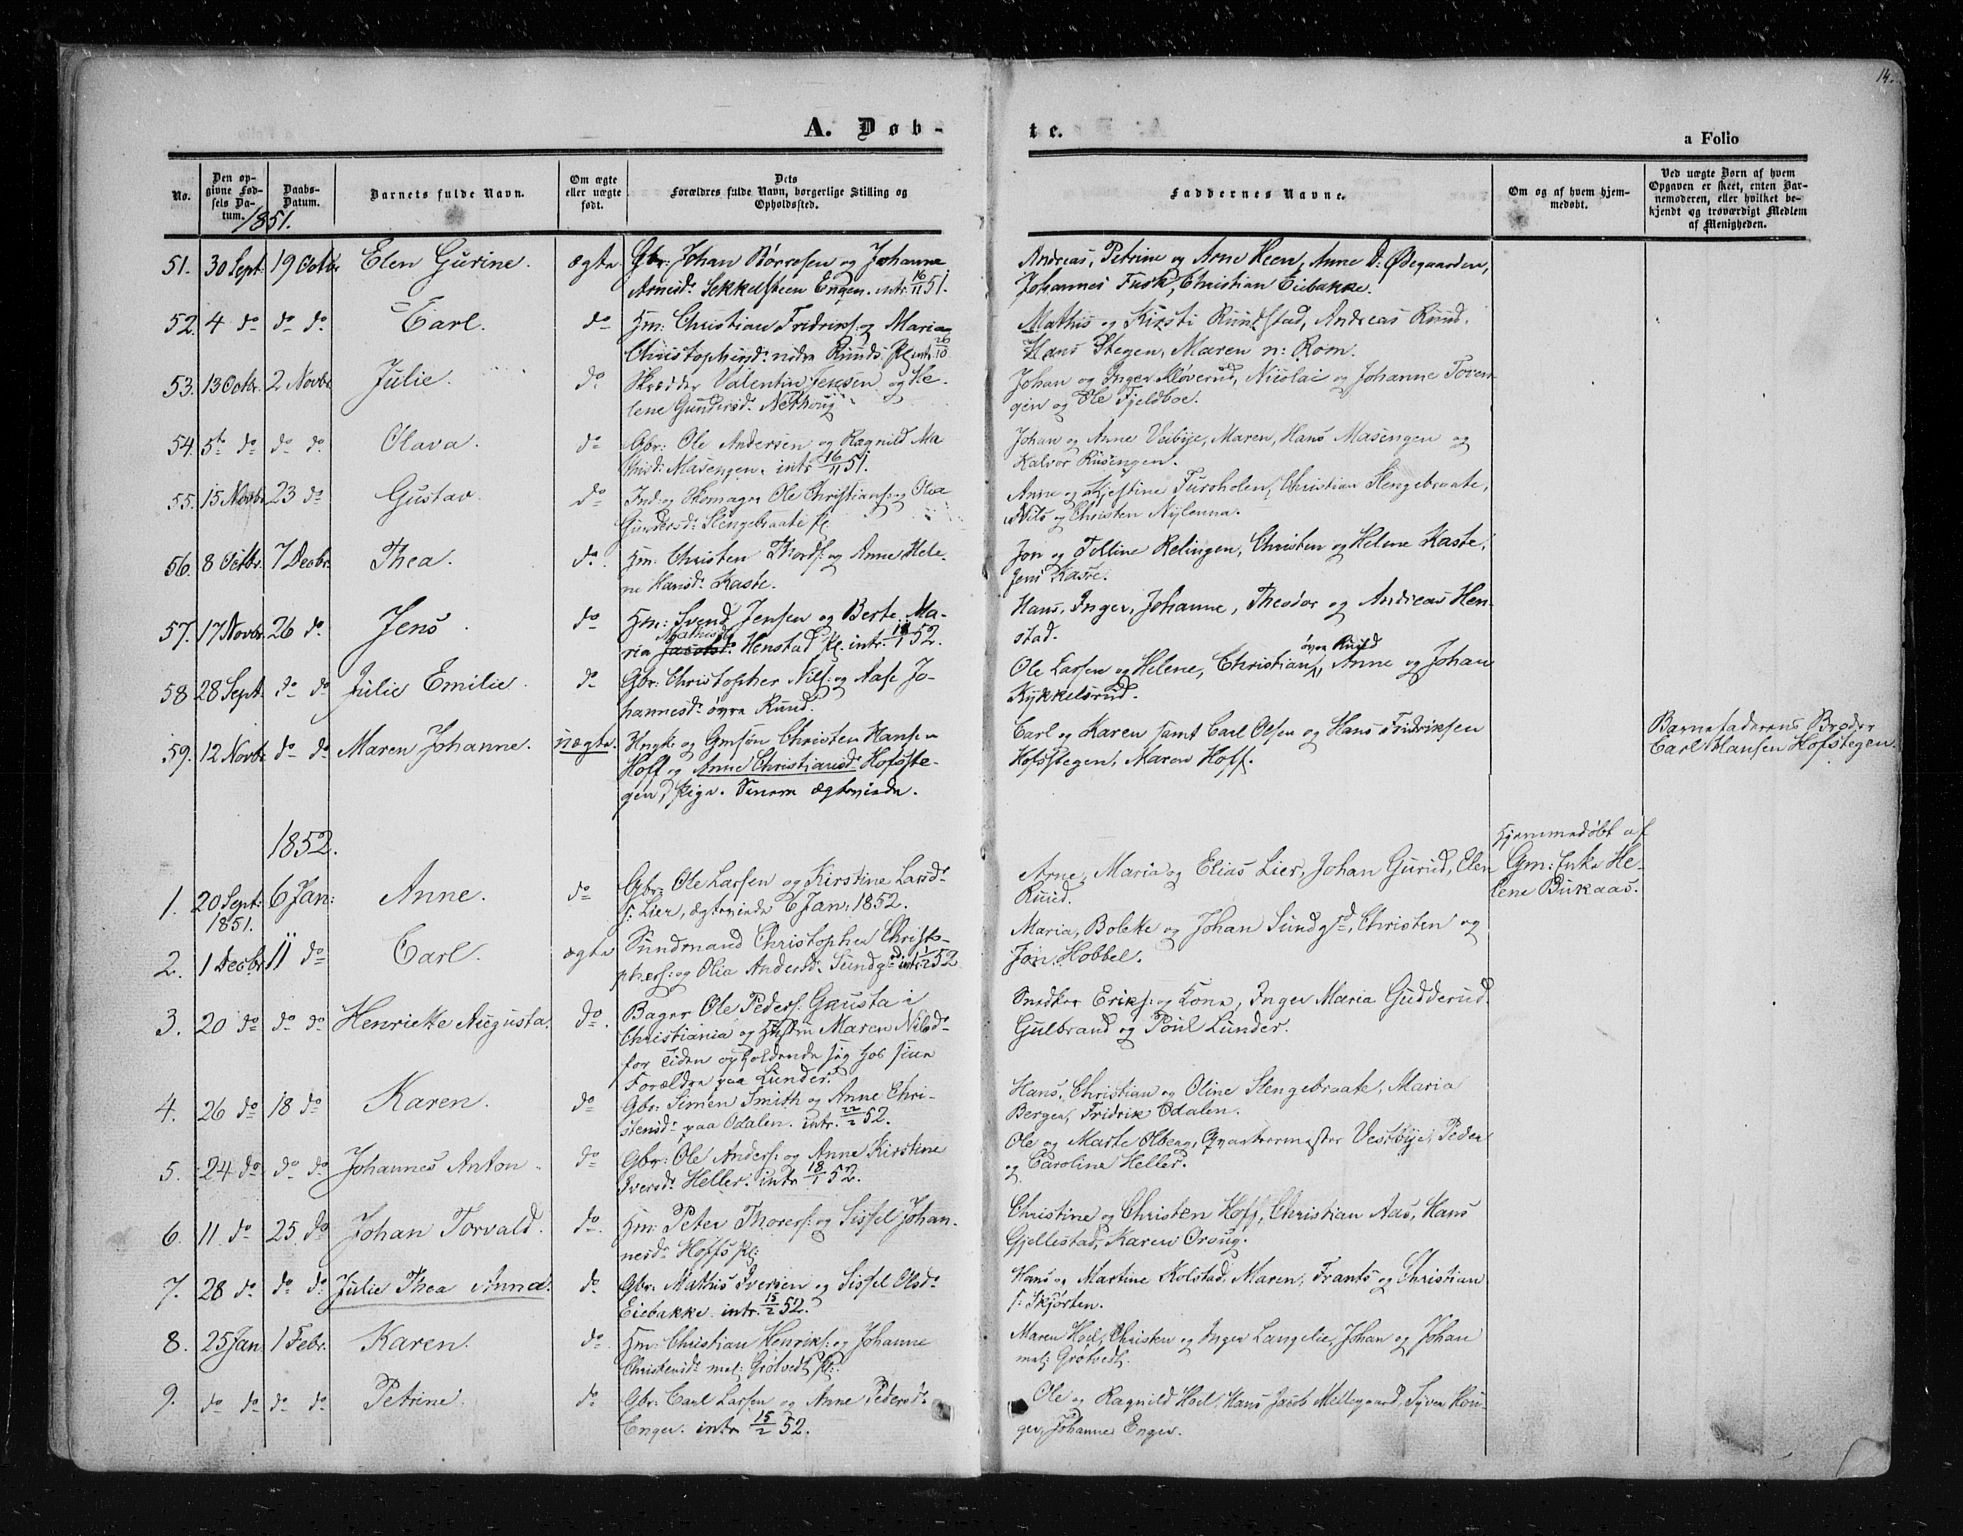 14.
A. Døb-
te.
a Folio
No.
Den op-
givne Fød-
sels Da-
tum.
Daabs-
Datum.
Barnets fulde Navn.
Om ægte
eller uægte
født.
Dets
Forældres fulde Navn, borgerlige Stilling og
Opholdssted.
Faddernes Navne.
Om og af hvem hjem-
medøbt.
Ved uægte Børn af hvem
Opgaven er skeet, enten Bar-
nemoderen, eller hvilket be-
kjendt og troværdigt Medlem
af Menigheden.
1851.
51. 30 Sept 19 Octbr Elen Gurine. ægte Gbr: Johan Børresen og Johanne
Arnesd: Sekkelsteen Engen. intr. 16/11 51.
Andreas, Petrine og Arne Heen, Anne D: Ødegaarden,
Johannes Fusk, Christian Eiebakke.
52. 4 do do do Carl. do Hm: Christian Fridriks: og Maria
Christophersd: nedre Ruuds Pl intr 26/10
Mathis og Kirsti Rundstad, Andreas Ruud.
Hans Stegen, Maren n: Rom.
53. 13 Octbr. 2 Novbr Julie. do Skrædder Valentin Jensen og He-
lene Gundersd: Nethoug
Johan og Inger Kløverud, Nicolai og Johanne Toven-
gen og Ole Fjeldboe.
54. 5te do do do Olava. do Gbr: Ole Andersen og Ragnild Ma
thisd: Masengen. intr 16/11 51.
Johan og Anne Veibye, Maren, Hans Masengen og
Halvor Rusengen.
55. 15 Novbr 23 do Gustav. do Ind: og Skomager Ole Christians: og Olea
Gundersd: Slengebraate pl
Anne og Kjestine Furoholen, Christian Slengebraate,
Nils og Christen Nylenna.
56. 8 Octbr. 7 Decbr Thea. do. Hm: Christen Thords: og Anne Hele-
ne Hansd: Kaste.
Jon og Tolline Relingen, Christen og Helene Kaste,
Jens Kaste.
57. 17 Novbr. 26 do Jens. do Hm: Svend Jensen og Berte Ma-
ria Jacobsd: Mathisd: Henstad Pl. intr. 52.
Hans, Inger, Johanne, Theodor og Andreas Hen-
stad.
58 28 Sept. do do Julie Emilie. do Gbr: Christopher Nils: og Aase Jo-
hannesd: øvre Ruud.
Ole Larsen og Helene, Christian øvre Ruud, Anne og Johan
Kykkelsrud.
59. 12 Novbr do do Maren Johanne. uægte. Ungk: og Gmsøn Christen Hansen
Hoff og Anne Christiansd: Hofsste-
gen, pige. Senere ægteviede.
Carl og Karen samt Carl Olsen og Hans Fridriksen
Hofsstegen, Maren Hoff.
Barnefaderens Broder
Carl Hansen Hofstegen.
1852.
1. 20 Sept: 1851. 6 Jan: Anne. do Gbr: Ole Larsen og Kirstine Larsd:
s: Lier, ægteviede 6 Jan: 1852.
Arne, Maria og Elias Lier, Johan Gurud, Elen
Ruud.
Hjemmedøbt af
Gm: Enke He-
lene Bukaas.
2. 1 Decbr 11 do Carl. ægte Sundmand Christopher Christo-
phers: og Olia Andersd: Sundgsd intr 52
Maria, Bolette og Johan Sundgsd, Christen og
Jon Hobbel.
3. 20 do do do Henriette Augusta. do. Bager Ole Peders: Gausta i
Christiania og Hustru Maren Nilsd:
for Tiden opholdende sig hos sine
Forældre paa Lunder.
Snedker Eriks: og Kone, Inger Maria Gudderud.
Gulbrand og Poul Lunder.
4. 26 do 18 do Karen. do Gbr: Simen Smith og Anne Chri-
stensd: paa Odalen. intr. 22/2 52.
Hans, Christian og Oline Slengebraate, Maria
Bergen, Fridrik Odalen.
5. 24 do do do Johannes Anton do Gbr: Ole Anders: og Anne Kirstine
Iversd: Heller. intr 18/1 52.
Ole og Marte Olberg, Qvartermester Vestbye, Peder
og Caroline Heller.
6. 11 do 25 do Johan Torvald. do. Hm: Peter Thorers: og Sissel Johan-
nesd: Hoffs Pl:
Christine og Christen Hoff, Christian Aas, Hans
Gjellestad, Karen Oroug.
7. 28 do do do Julie Thea Anna. do. Gbr: Mathis Iversen og Sissel Olsd:
Eiebakke. intr. 15/2 52.
Hans og Martine Kolstad, Maren, Frants og Christian
s: Skjørten.
8. 25 Jan 1 Febr. Karen. do. Hm: Christian Henriks: og Johanne
Christensd: mel: Grøtvedt pl:
Maren Hoil, Christen og Inger Langelie, Johan og Johan
mel: Grøtvedt.
9. do do do do Petrine. do Gbr: Carl Larsen og Anne Pedersd:
Enger. intr 15/2 52.
Ole og Ragnild Hoil, Hans Jacob Millegaard, Syver Hou-
ger, Johanne Enger.